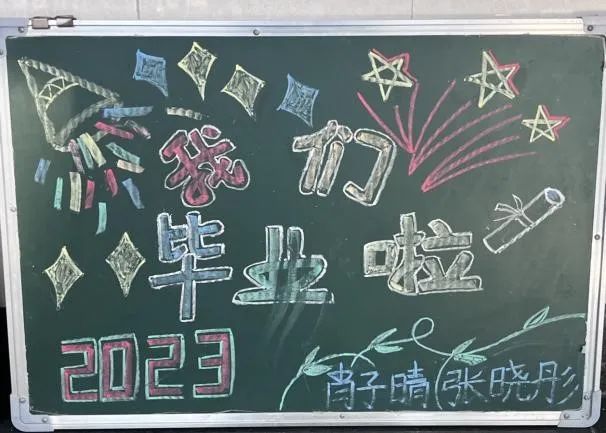 我们
毕业啦
2023 肖子晴(张晓彤